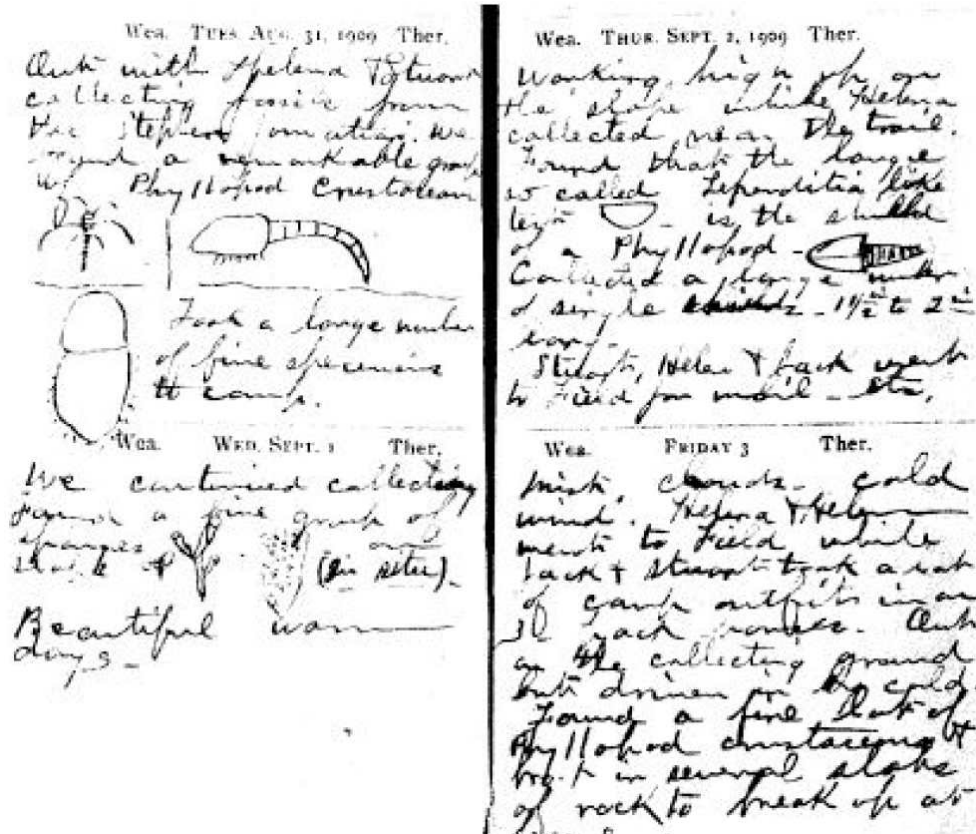 Wea. TUES. AUG. 31, 1909 Ther.
Out with Helena & Stuart
collecting fossils from
the Stephen formation. We
found a remarkable group
of Phyllopod Crustaceans
Took a large number
of fine specimens
to camp.
Wea. WED. SEPT. 1 Ther.
We continued collecting
Found a fine group of
sponges on
slope (in situ).
Beautiful warm
days -
Wea. THUR. SEPT. 2, 1909 Ther.
Working high up on
the slope while Helena
collected near the trail.
Found that the large
so called Leperditia like
test - is the shield
of a Phyllopod -
Collected a large number
of single - 1 1/2 to 2
Stuart, Helen & Jack went
to Field for mail - etc.
Wea. FRIDAY 3 Ther.
Mist, clouds - cold
wind. Helena & Helen
went to Field while
Jack & Stuart took a lot
of camp outfits in on
pack ponies. Out
on the collecting ground
but driven in by cold.
Found a fine lot of
Phyllopod crustaceans &
bro't in several slabs
of rock to break up at